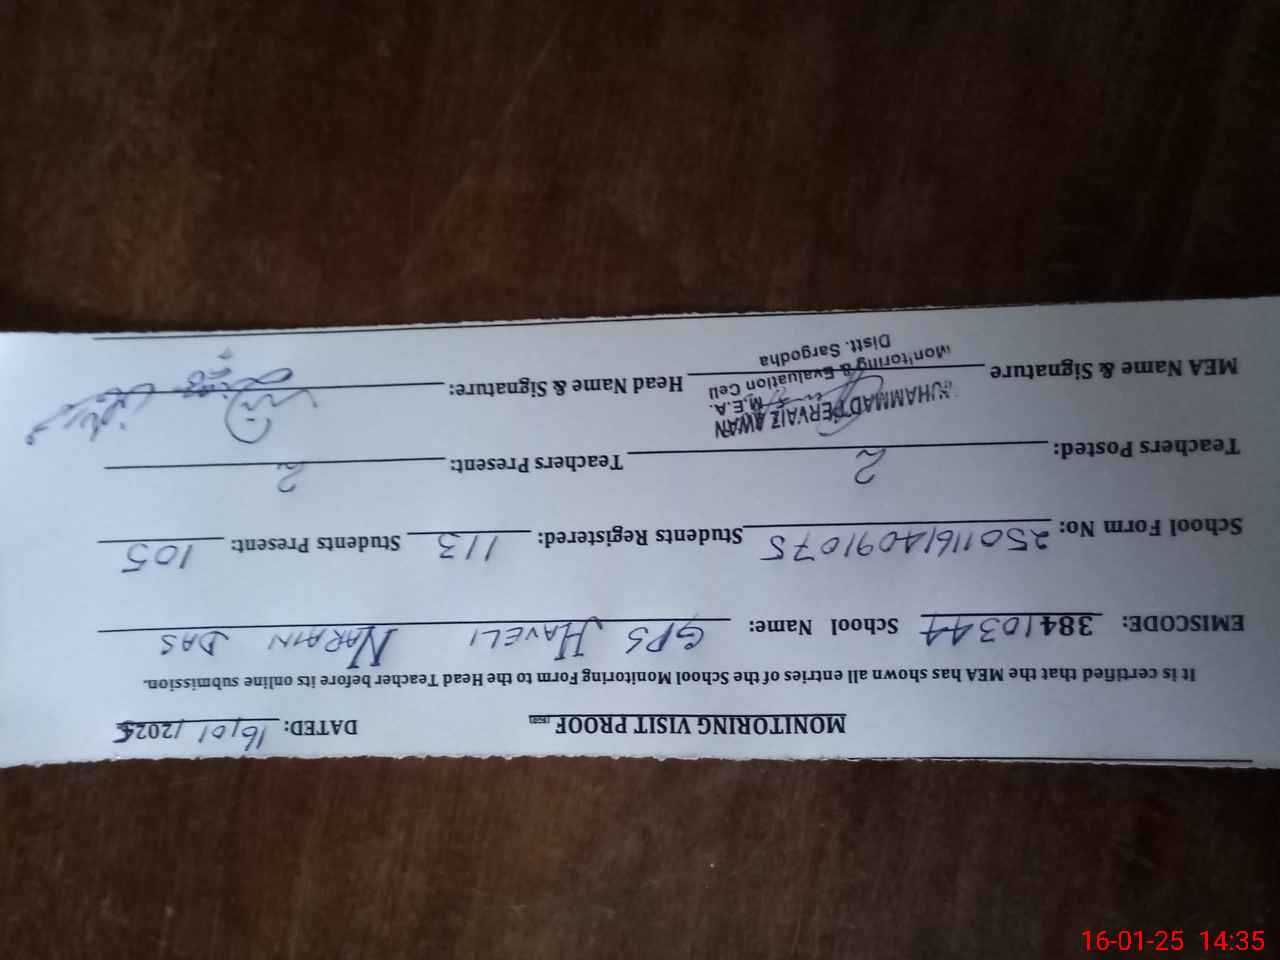 MONITORING VISIT PROOF DATED: 16/01/2025
It is certified that the MEA has shown all entries of the School Monitoring Form to the Head Teacher before its online submission.
EMISCODE: 38410344 School Name: GPS HAVELI NARAIN DAS
School Form No: 2501161409107S Students Registered: 113 Students Present: 105
Teachers Posted: 2 Teachers Present: 2
MEA Name & Signature Head Name & Signature:
MUHAMMAD PERVAIZ AWAN
M.E.A.
Monitoring & Evaluation Cell
Distt. Sargodha
16-01-25 14:35